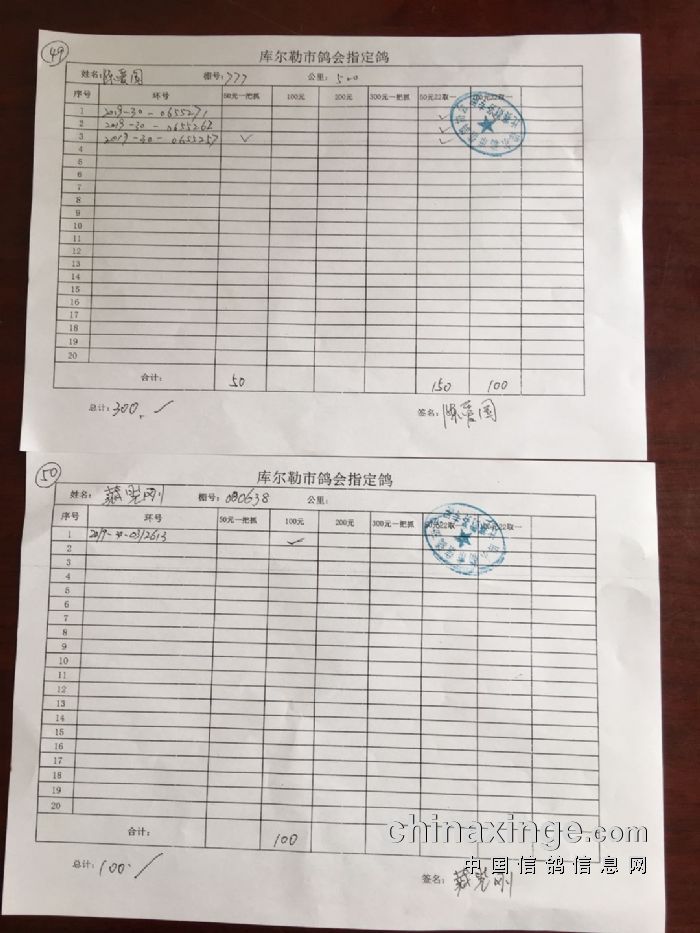 49
库尔勒市鸽会指定鸽
姓名: 陈爱国 棚号: 777 公里: 500
序号 环号 50元一把抓 100元 200元 300元一把抓 50元22取一
1 2019-30-0655271 ✓
2 2019-30-0655262 ✓
3 2019-30-0655257 ✓ ✓
4
5
6
7
8
9
10
11
12
13
14
15
16
17
18
19
20
合计: 50 150 100
总计: 300.✓ 签名: 陈爱国
50
库尔勒市鸽会指定鸽
姓名: 棚号: 080638 公里:
序号 环号 50元一把抓 100元 200元 300元一把抓 50元22取一
1 2019-30-0312613 ✓
2
3
4
5
6
7
8
9
10
11
12
13
14
15
16
17
18
19
20
合计: 100
总计: 100.✓ 签名:
chinaxinge.com
中国信鸽信息网